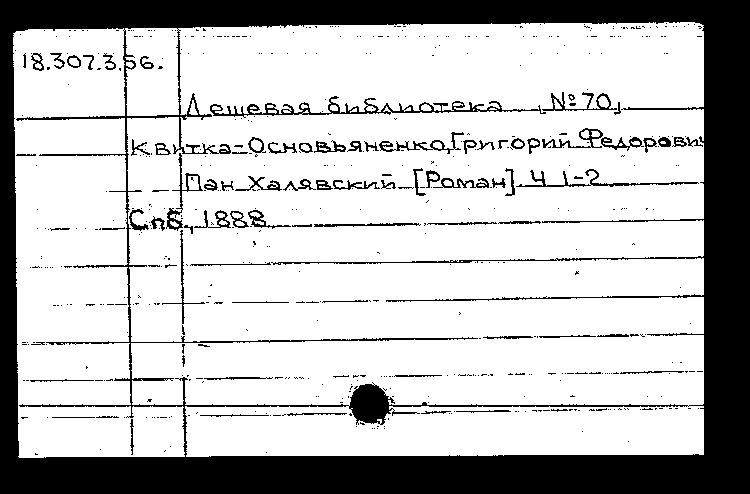 18.307.3.56.
Дешевая библиотека, №70,
Квитка-Основьяненко, Григорий Федорович
Пан Халявский [Роман]. Ч 1-2
Спб., 1888